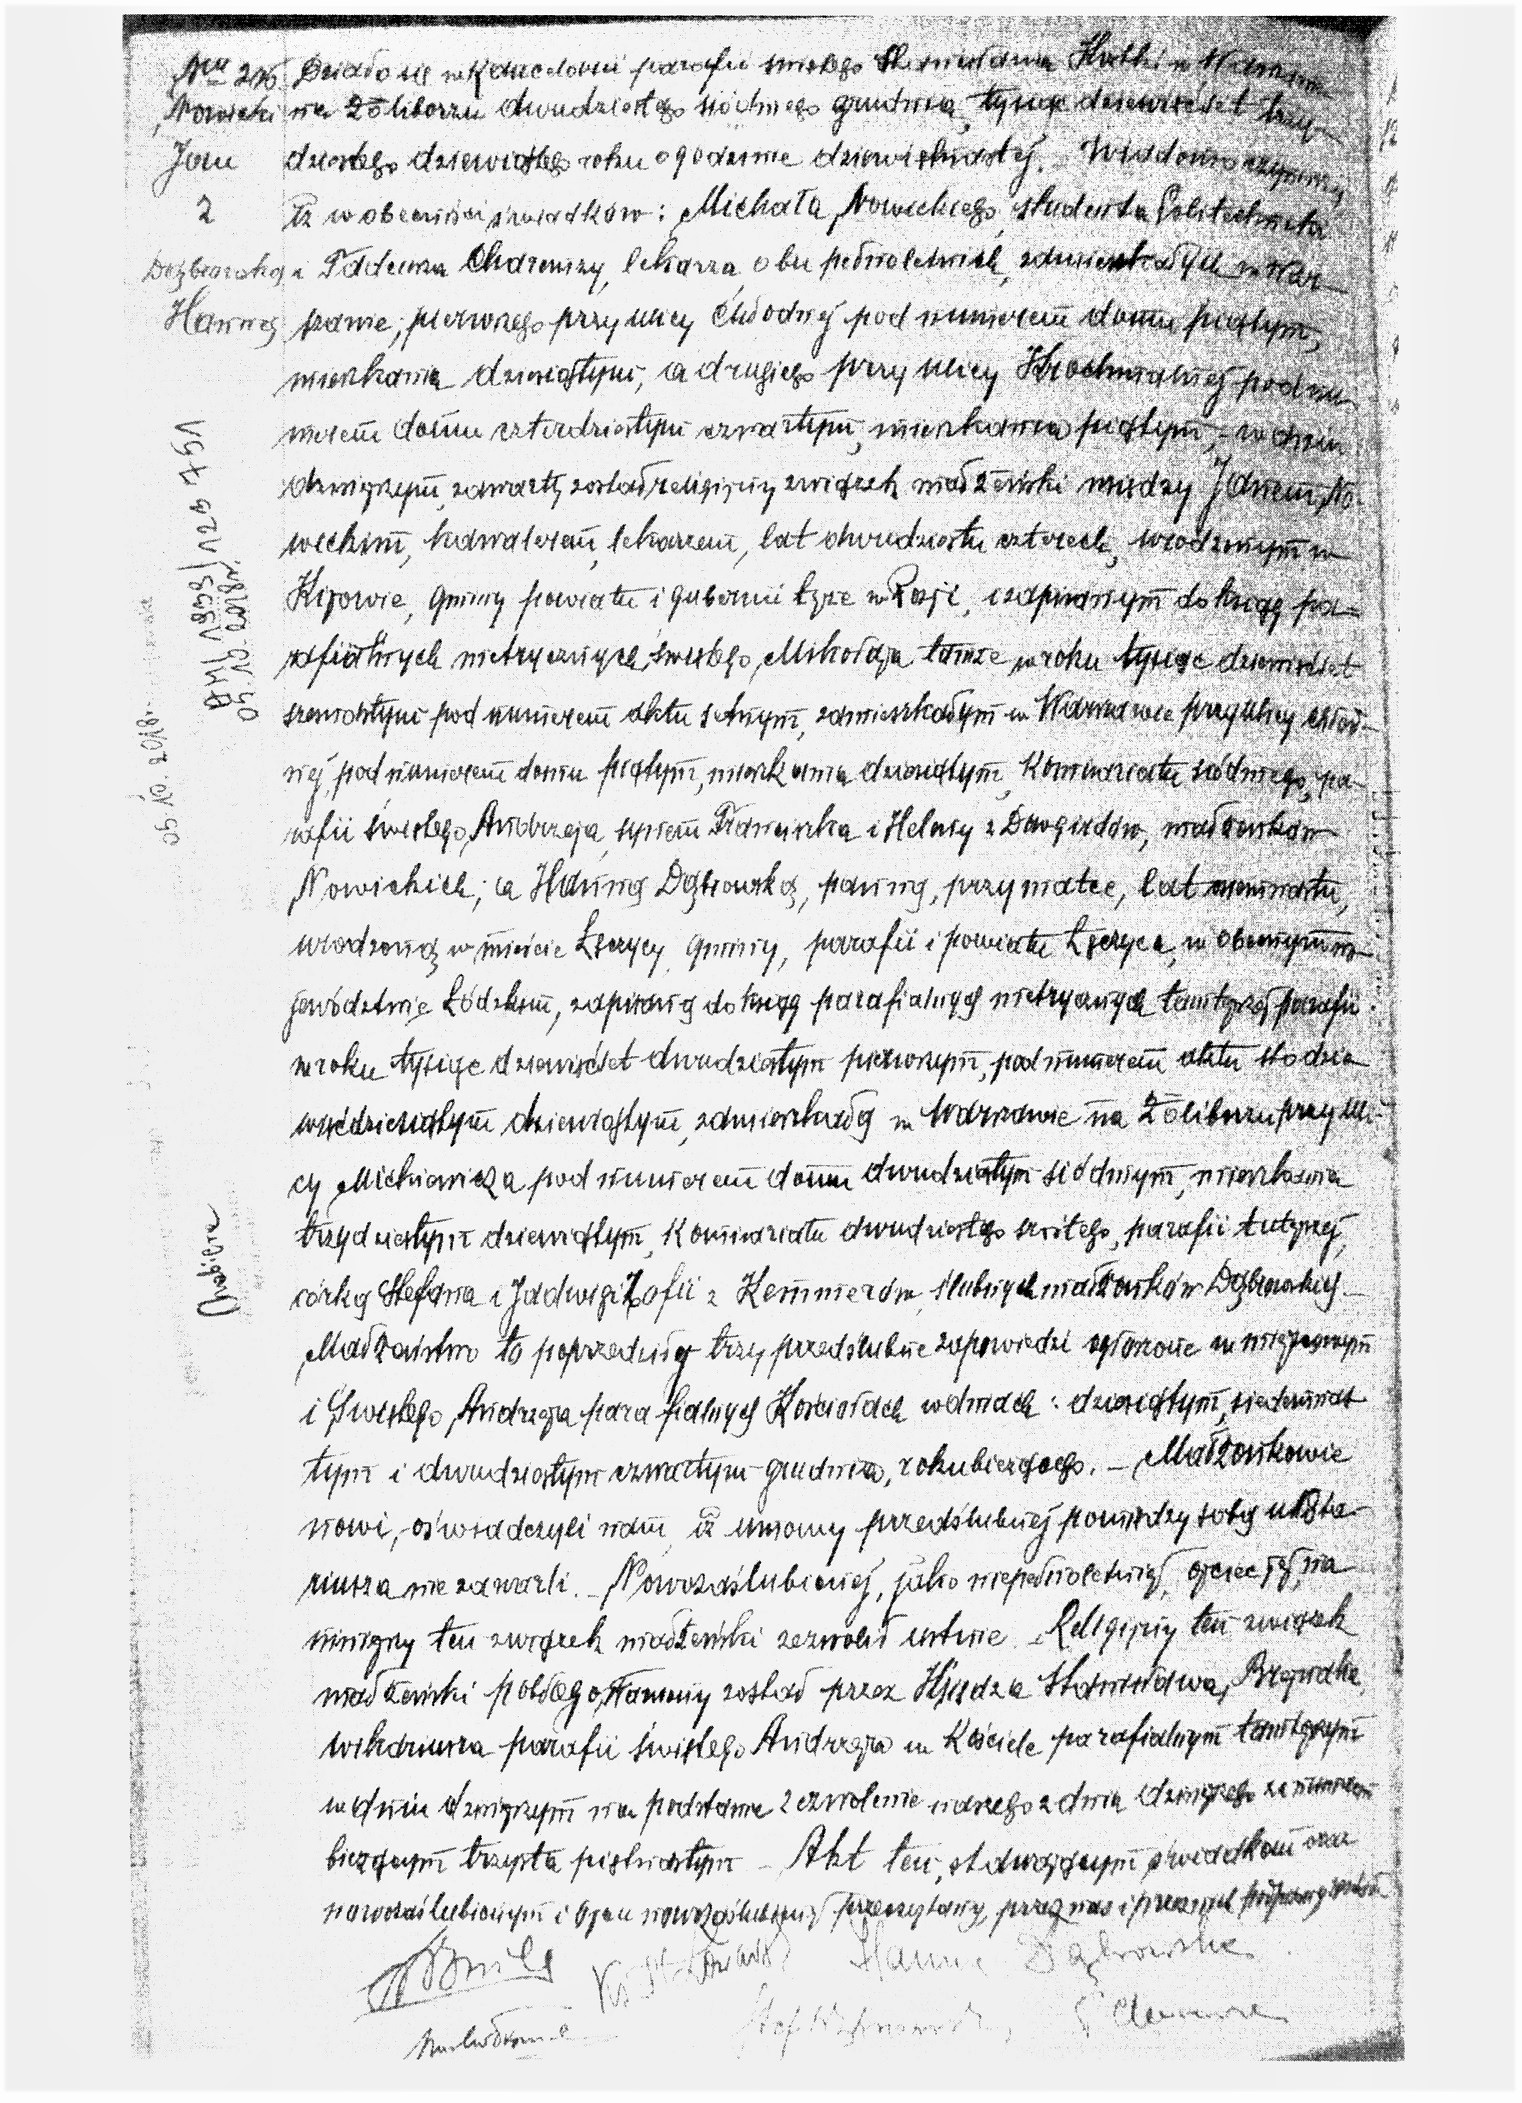 Nr 216 Działo się w Kancelarii parafii świętego Stanisława Kostki w Warszawie
Nowicki na Żoliborzu dwudziestego siódmego grudnia, tysiąc dziewięćset trzy-
Jan dziestego dziewiątego roku o godzinie dziewiętnastej. Wiadomo czynimy,
z iż w obecności świadków: Michała Nowickiego, studenta Politechniki
Dąbrowską i Tadeusza Charemzy, lekarza, obu pełnoletnich, zamieszkałych w War-
Hanną szawie, pierwszego przy ulicy Chłodnej pod numerem domu piątym,
mieszkania dziesiątym, a drugiego przy ulicy Krochmalnej pod nu-
merem domu czterdziestym czwartym, mieszkania piątym, – w dniu
dzisiejszym zawarty został religijny związek małżeński między Janem No-
wickim, kawalerem, lekarzem, lat dwudziestu czterech, urodzonym w
Kijowie, gminy powiatu i gubernii tejże w Rosji, i zapisanym do ksiąg pa-
rafialnych metrycznych świętego Mikołaja tamże w roku tysiąc dziewięćset
szesnastym pod numerem aktu setnym, zamieszkałym w Warszawie przy ulicy Chłod-
nej pod numerem domu piątym, mieszkania dziesiątym, Komisariatu siódmego, pa-
rafii świętego Andrzeja, synem Franciszka i Heleny z Dowgirdów, małżonków
Nowickich; a Hanną Dąbrowską, panną, przy matce, lat osiemnastu,
urodzoną w mieście Łęczycy, gminy, parafii i powiatu Łęczyca, w obecnym wo-
jewództwie Łódzkim, zapisaną do ksiąg parafialnych metrycznych tamtejszej parafii
w roku tysiąc dziewięćset dwudziestym pierwszym, pod numerem aktu sto dzie-
więćdziesiątym dziewiątym, zamieszkałą w Warszawie na Żoliborzu przy uli-
cy Mickiewicza pod numerem domu dwudziestym siódmym, mieszkania
trzydziestym dziewiątym, Komisariatu dwudziestego szóstego, parafii tutejszej,
córką Stefana i Jadwigi Zofii z Kemnerów, ślubnych małżonków Dąbrowskich.
Małżeństwo to poprzedziły trzy przedślubne zapowiedzi ogłoszone w miejscowym
i Świętego Andrzeja parafialnych Kościołach w dniach: dziesiątym, siedemnas-
tym i dwudziestym czwartym grudnia, roku bieżącego. – Małżonkowie
nowi, oświadczyli nam, iż umowy przedślubnej pomiędzy sobą u Nota-
riusza nie zawarli. – Nowozaślubionej, jako niepełnoletniej, ojciec jej na
niniejszy ten związek małżeński zezwolił ustnie. – Religijny ten związek
małżeński pobłogosławiony został przez Księdza Stanisława
wikariusza parafii świętego Andrzeja w Kościele parafialnym tamtejszym
w dniu dzisiejszym na podstawie zezwolenia naszego z dnia dzisiejszego za numerem
bieżącym trzysta piętnastym – Akt ten, stawającym, świadkom oraz
nowozaślubionym i ojcu nowozaślubionej przeczytany, przez nas i przez nich podpisany został
Hanna Dąbrowska